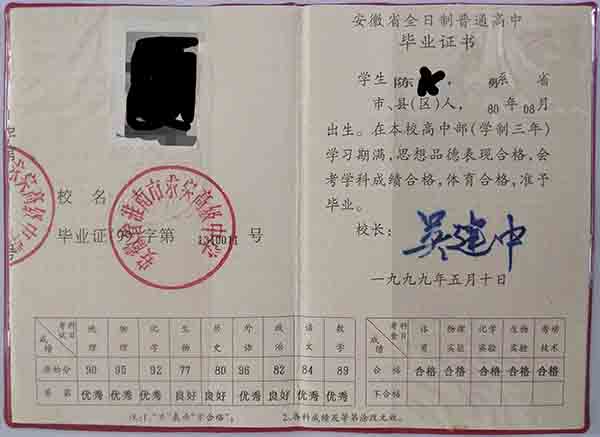 校名
毕业证(99)字第1310011号
安徽省淮南市
高级中学
考试科目 地理 物理 化学 生物 历史 外语 政治 语文 数学
成绩
原始分 90 95 92 77 80 96 82 84 89
等第 优秀 优秀 优秀 良好 良好 优秀 良好 良好 优秀
注:1."不"表示"不合格";
2.各科成绩及等第涂改无效。
安徽省全日制普通高中
毕业证书
学生陈东,男系 省
市、县(区)人,80年08月
出生。在本校高中部(学制三年)
学习期满,思想品德表现合格,会
考学科成绩合格,体育合格,准予
毕业。
校长:吴建中
一九九九年五月十日
考查科目 体育 物理实验 化学实验 生物实验 劳动技术
成绩
合格 合格 合格 合格 合格 合格
不合格